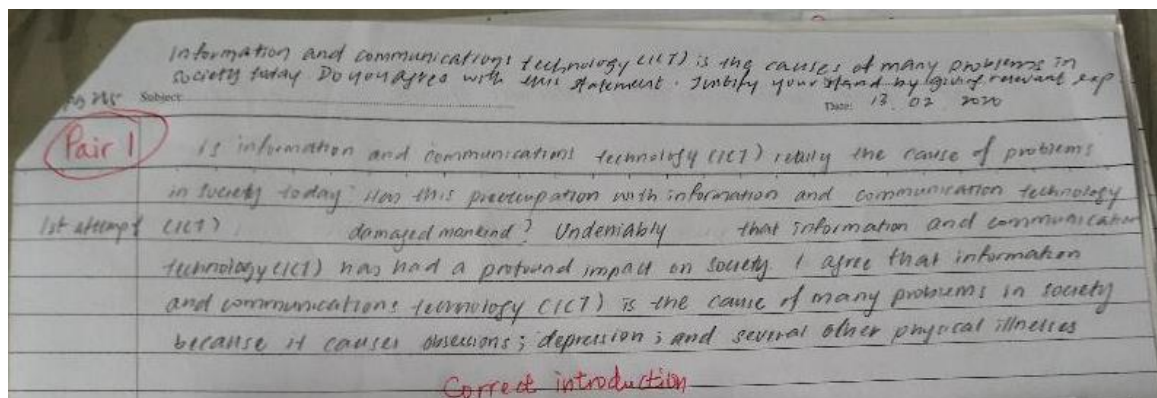 Information and communications technology (ICT) is the causes of many problems in
society today Do you agree with this statement. Justify your stand by giving relevant exp
Subject: Date: 13. 02 2020
Pair 1 Is information and communications technology (ICT) really the cause of problems
in society today? Has this preoccupation with information and communication technology
1st attempt (ICT) damaged mankind? Undeniably that information and communication
technology (ICT) has had a profound impact on society. I agree that information
and communications technology (ICT) is the cause of many problems in society
because it causes obsessions; depression; and several other physical illnesses
Correct introduction